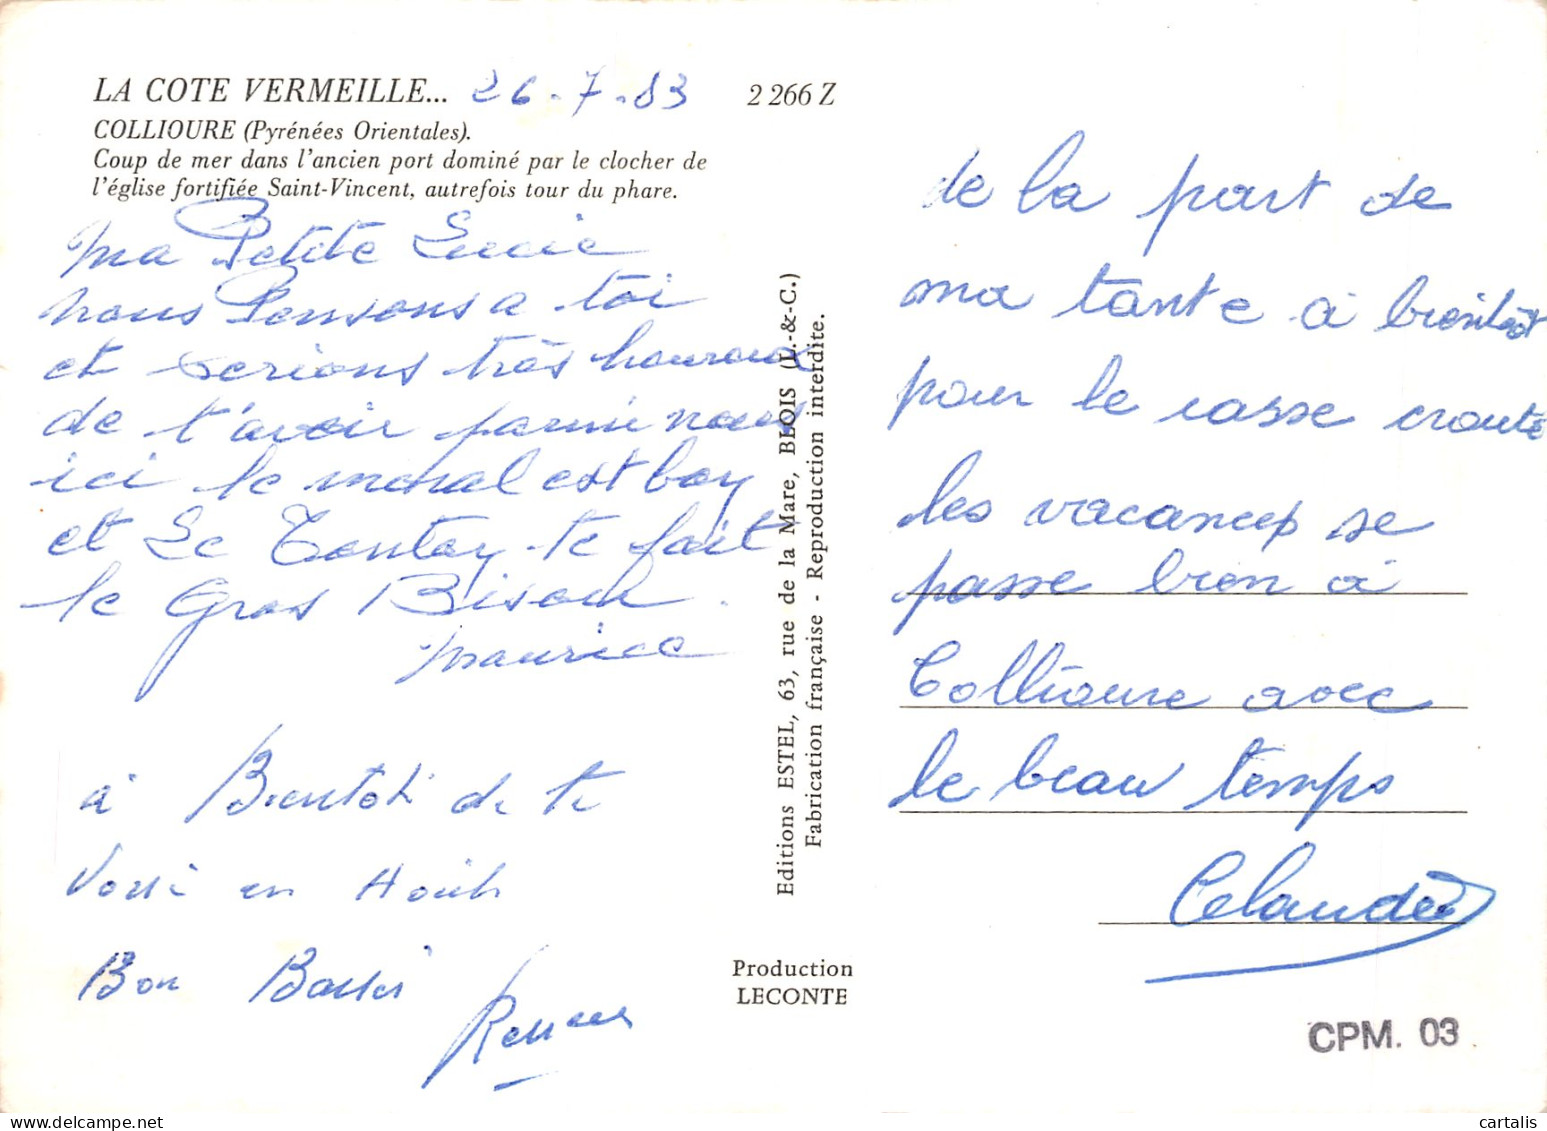 LA COTE VERMEILLE... 26-7-83
2 266 Z
COLLIOURE (Pyrénées Orientales).
Coup de mer dans l'ancien port dominé par le clocher de
l'église fortifiée Saint-Vincent, autrefois tour du phare.
Ma Petite Lucie
nous Pensons a toi
et serions très houroux
de t'avoir parmi nous
ici le moral est bon
et Le Tonton te fait
le Gros Bisou.
Maurice
à Bientot de te
en Août
Bon
Editions ESTEL, 63, rue de la Mare, BLOIS (L.-&-C.)
Fabrication française - Reproduction interdite.
Production
LECONTE
de la part de
ma tante à bientôt
pour le casse croute
les vacances se
passe bien à
Collioure avec
le beau temps
Claudie
CPM. 03
cartalis